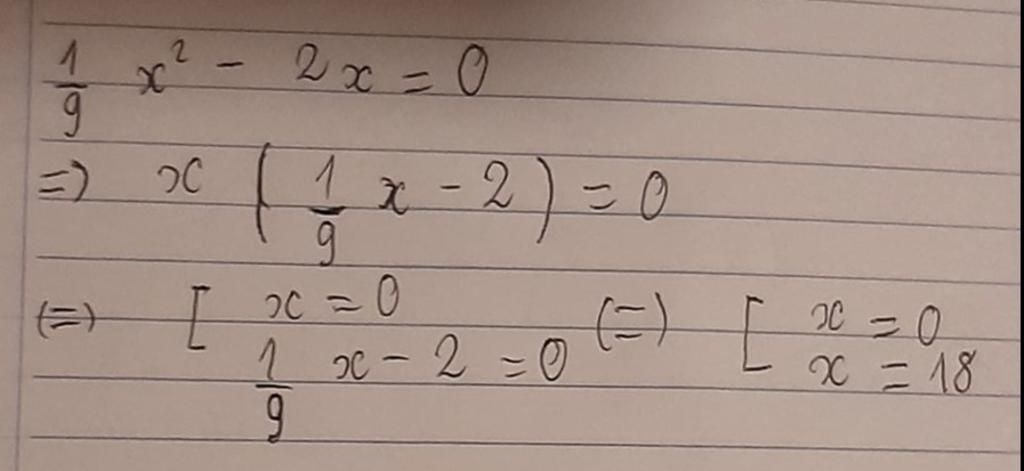 1/9 x² - 2x = 0
=> x (1/9 x - 2) = 0
(=) [ x = 0 (=) [ x = 0
1/9 x - 2 = 0 x = 18